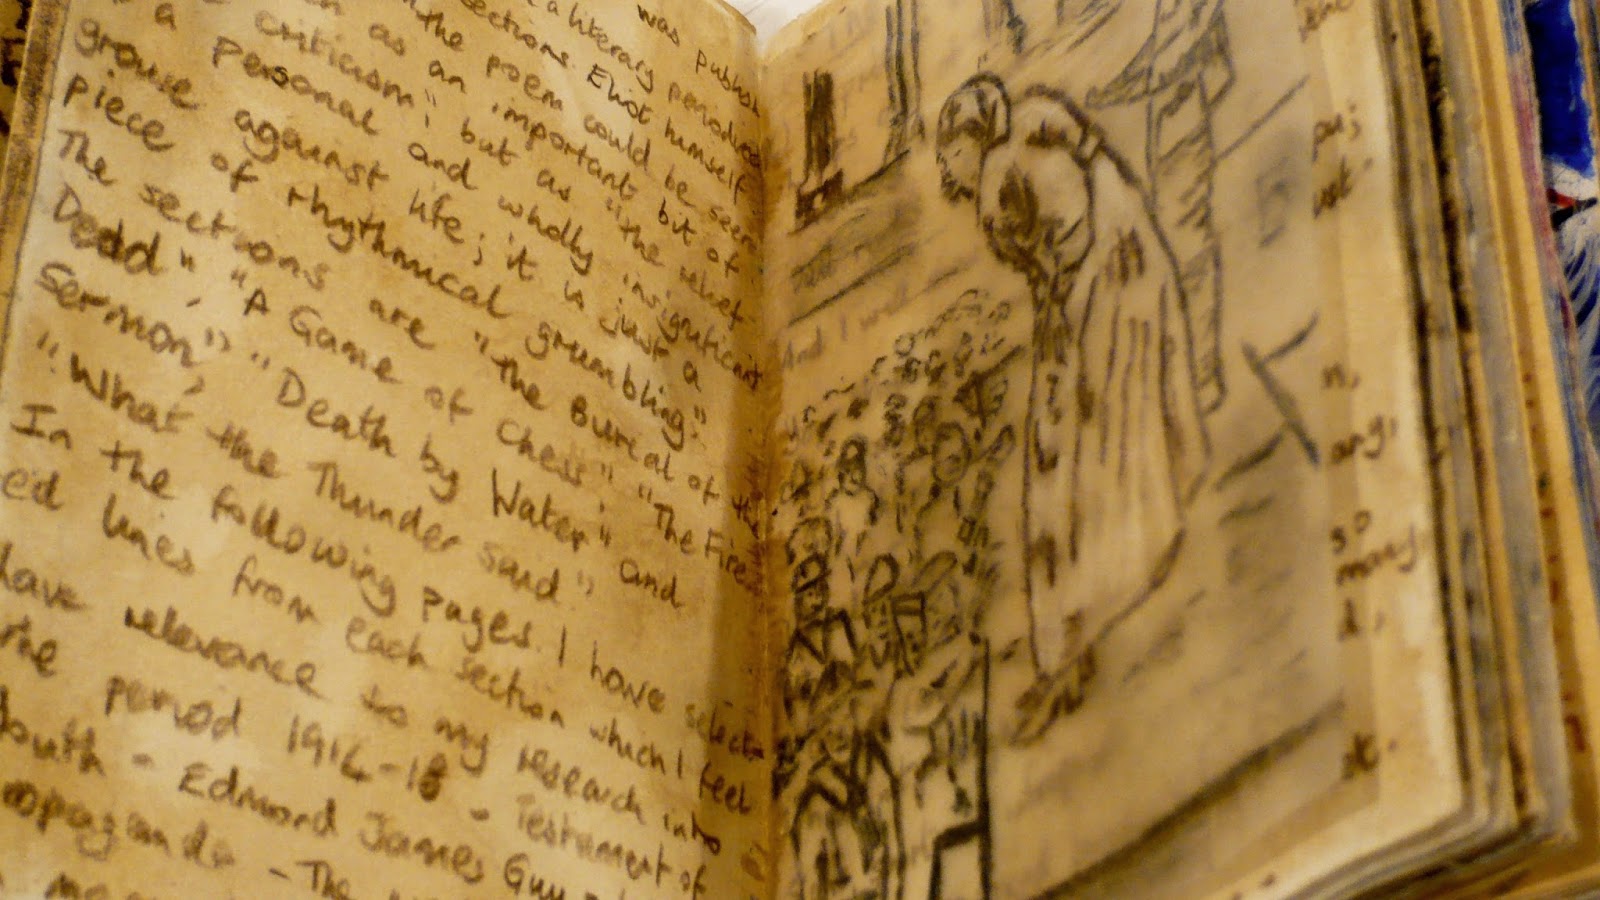 was publish
a literary periodical
sections. Eliot himself
the poem could be seen
as an important bit of
criticism" but as "the relief
a personal and wholly insignificant
grouse against life; it is just a
piece of rhythmical grumbling"
The sections are "the Burial of the
Dead", "A Game of Chess" "The Fire
Sermon," "Death by Water" and
"What the Thunder said."
In the following pages. I have select
ed lines from each section which I feel
have relevance to my research into
the period 1914-18 - Testament of
Youth - Edmond James Guy -
propaganda - The
And I
so
many,